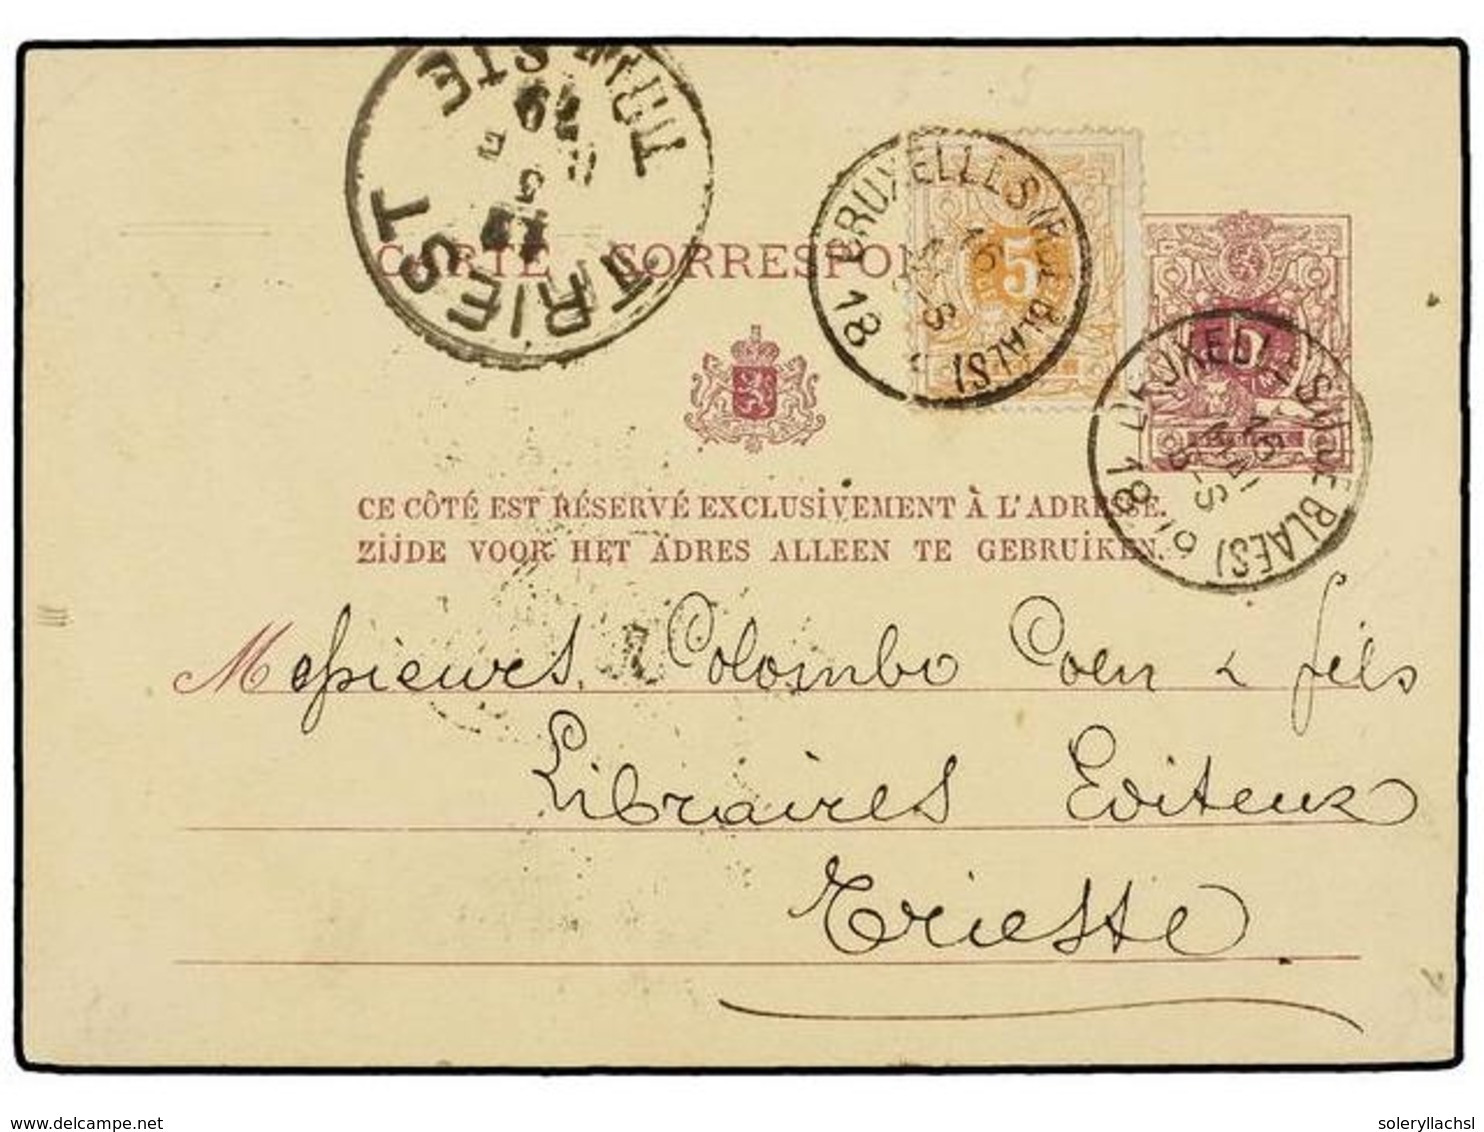 TRIEST TRIESTE
79
BRUXELLES (RUE BLAES)
18
5
CARTE CORRESPON
BRUXELLES (RUE BLAES)
18
CE CÔTÉ EST RÉSERVÉ EXCLUSIVEMENT À L'ADRESSE.
ZIJDE VOOR HET ADRES ALLEEN TE GEBRUIKEN.
Messieurs Colombo Coen & fils
Libraires Editeurs
Trieste
www.delcampe.net
soleryllachsl